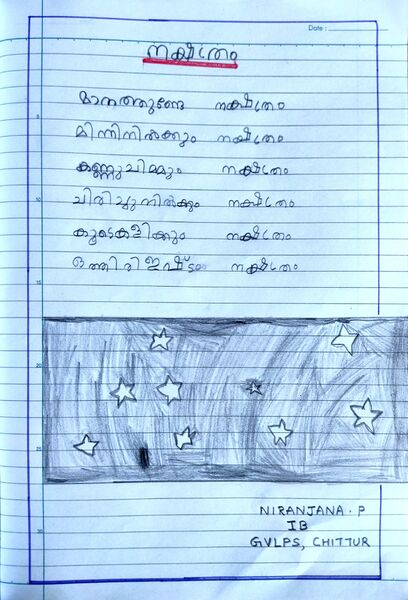 Date :
നക്ഷത്രം
മാനത്തുണ്ടേ നക്ഷത്രം
മിന്നിനിൽക്കും നക്ഷത്രം
കണ്ണുചിമ്മും നക്ഷത്രം
ചിരിച്ചുനിൽക്കും നക്ഷത്രം
കൂടെകളിക്കും നക്ഷത്രം
ഒത്തിരിഇഷ്ടം നക്ഷത്രം
5
10
15
20
25
30
NIRANJANA . P
IB
GVLPS, CHITTUR